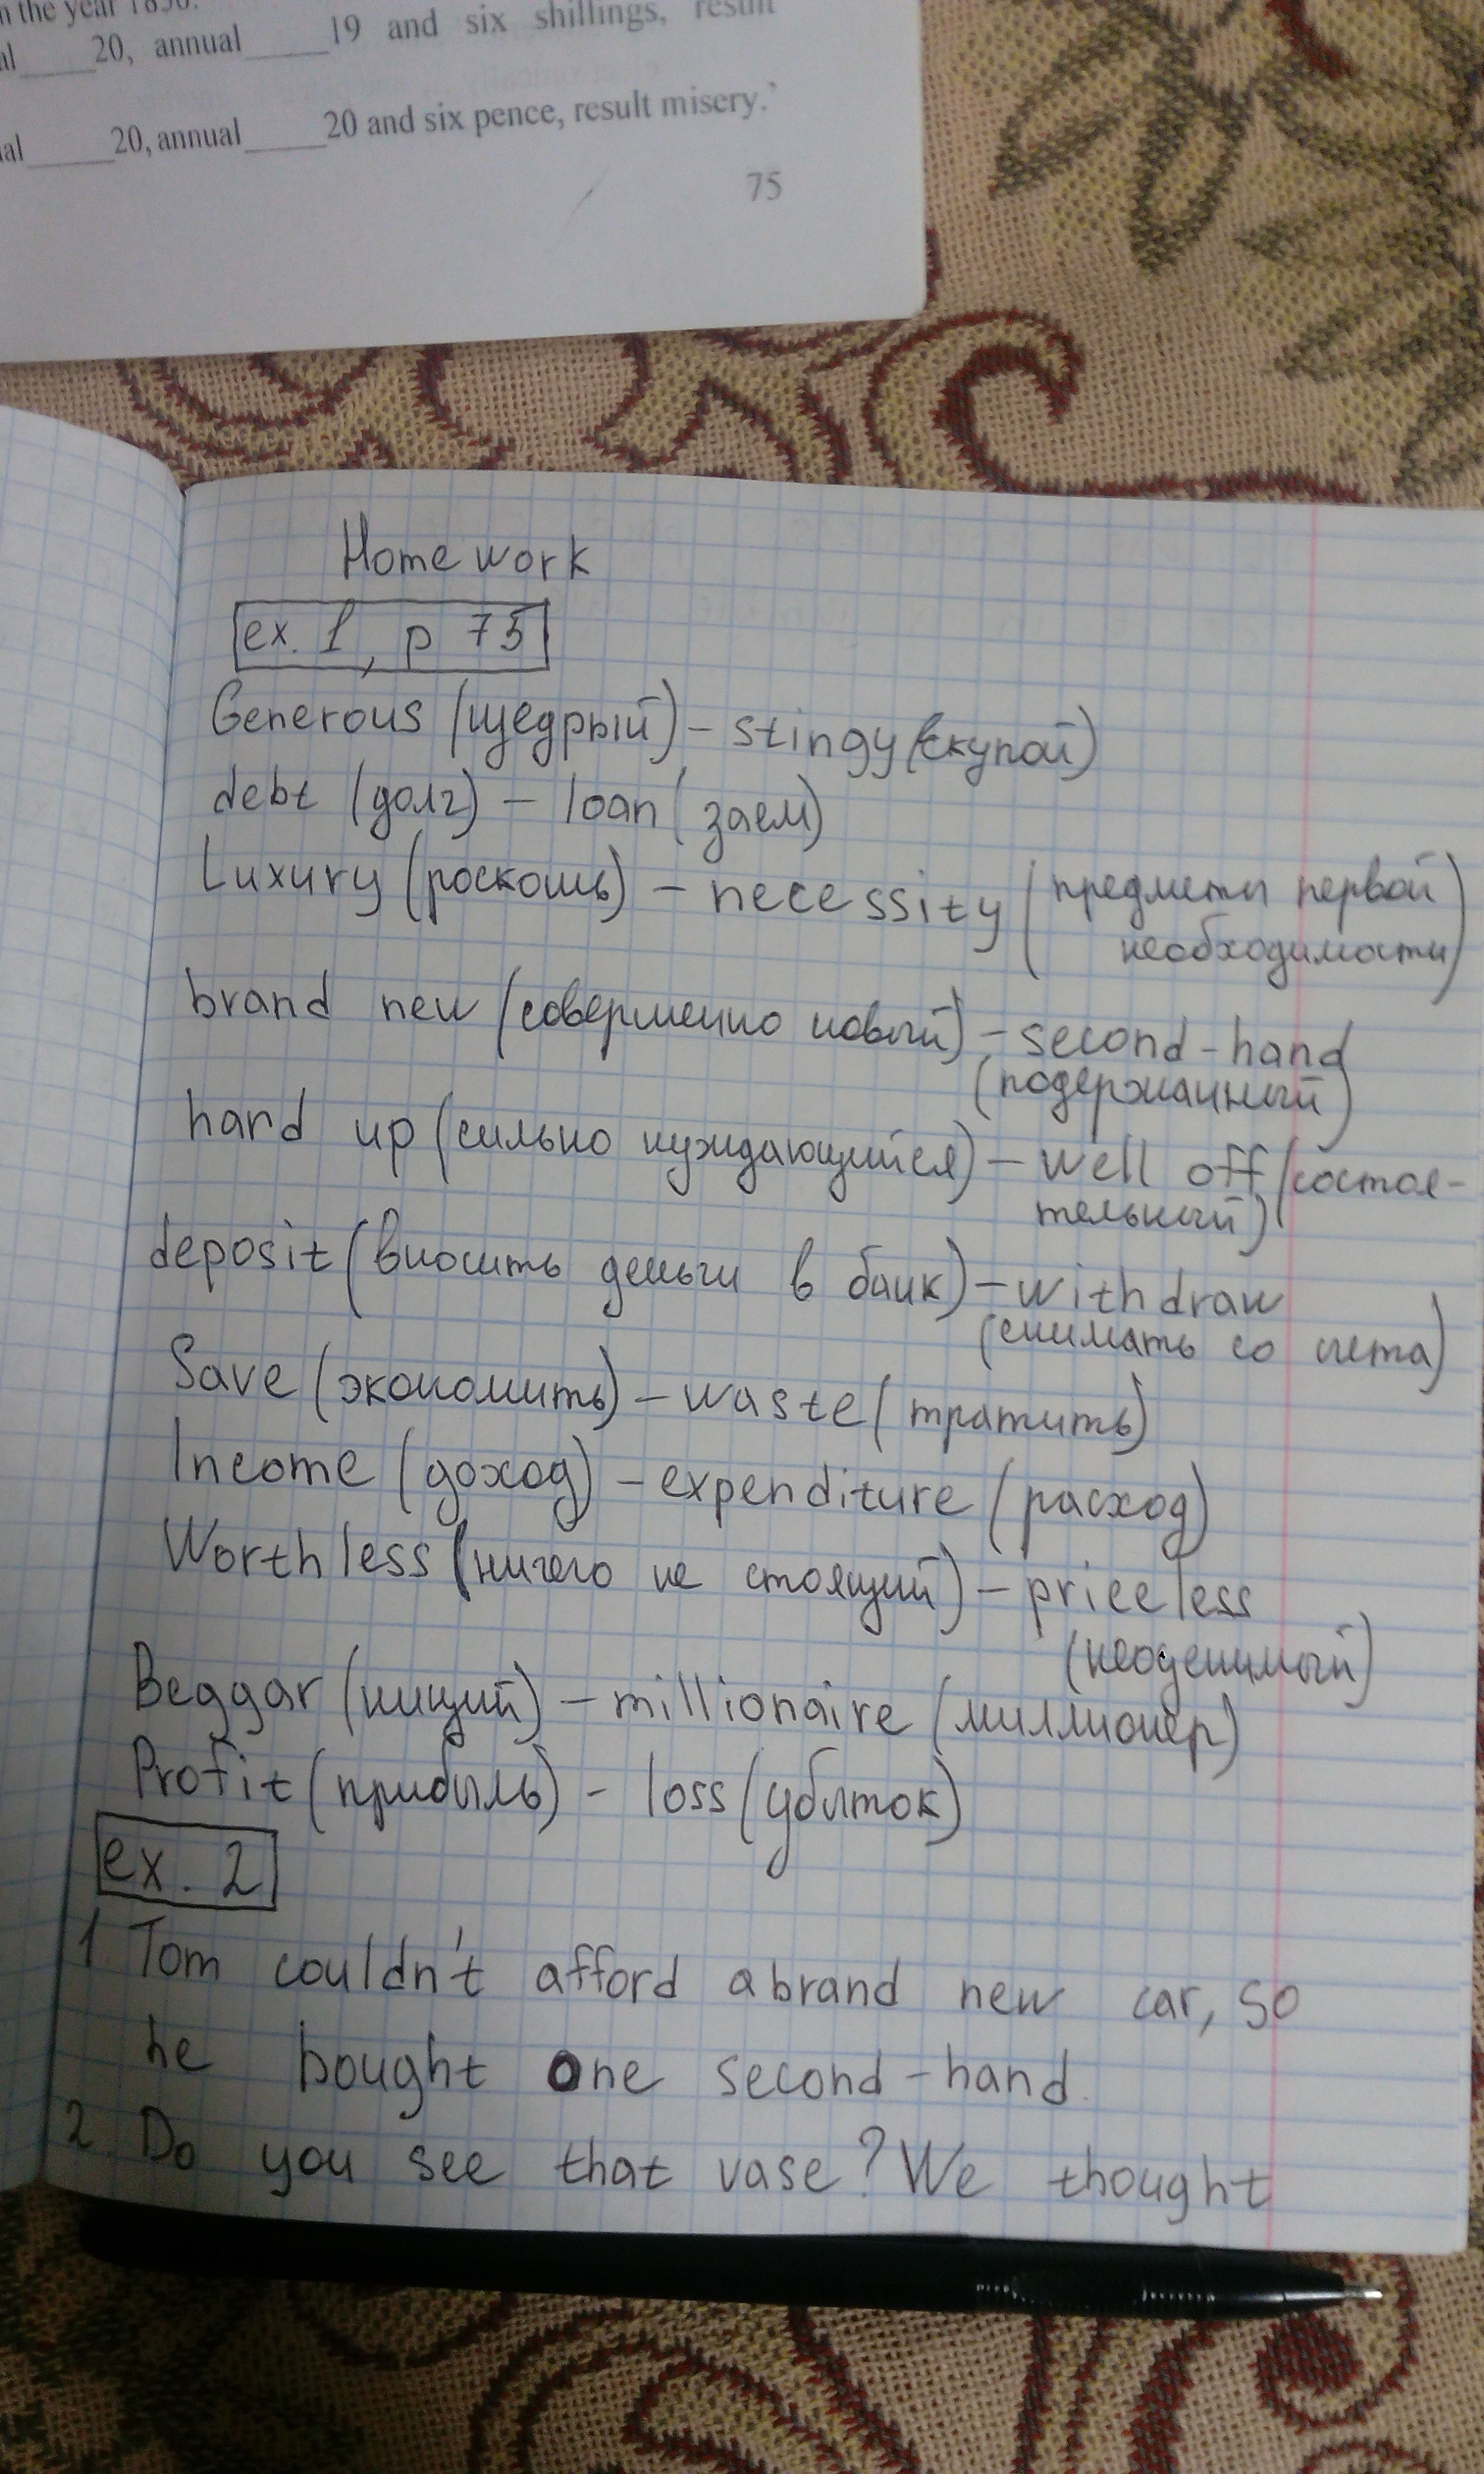 n the year 1850.
al_____20, annual_____19 and six shillings, result
ual_____20, annual_____20 and six pence, result misery.'
75
Home work
ex. 1, p 75
Generous (щедрый) – stingy (скупой)
debt (долг) – loan (заем)
Luxury (роскошь) – necessity (предметы первой
необходимости)
brand new (совершенно новый) – second-hand
(подержанный)
hard up (сильно нуждающийся) – well off (состоя-
тельный)
deposit (вносить деньги в банк) – withdraw
(снимать со счета)
Save (экономить) – waste (тратить)
Income (доход) – expenditure (расход)
Worthless (ничего не стоящий) – priceless
(неоценимый)
Beggar (нищий) – millionaire (миллионер)
Profit (прибыль) – loss (убыток)
ex. 2
1. Tom couldn't afford a brand new car, so
he bought one second-hand.
2. Do you see that vase? We thought